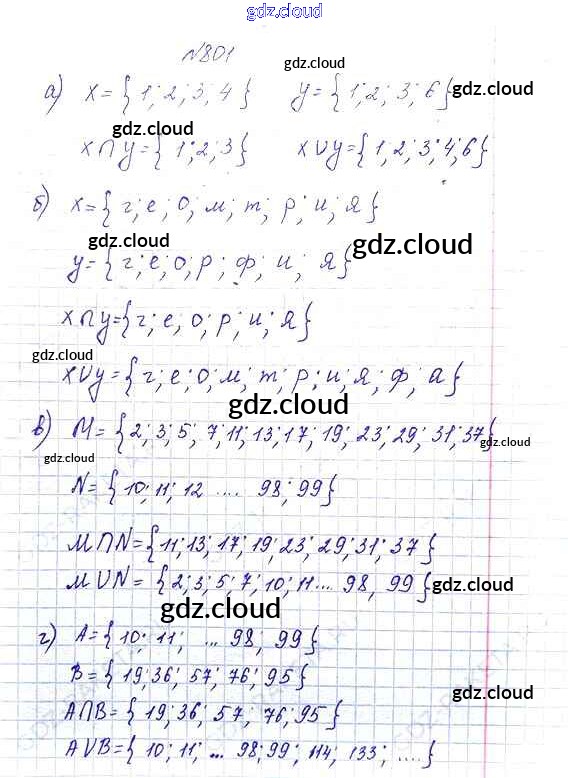 gdz.cloud
N801
gdz.cloud
а) x={1;2;3;4} y={1;2;3;6} gdz.cloud
gdz.cloud
x∩y={1;2;3} x∪y={1;2;3;4;6}
б) x={г;е;о;м;т;р;и;я}
gdz.cloud gdz.cloud
y={г;е;о;р;ф;и;я}
x∩y={г;е;о;р;и;я}
gdz.cloud
x∪y={г;е;о;м;т;р;и;я;ф;а}
gdz.cloud
в) M={2;3;5;7;11;13;17;19;23;29;31;37}
gdz.cloud gdz.cloud
N={10;11;12 .... 98;99}
M∩N={11;13;17;19;23;29;31;37}
M∪N={2;3;5;7;10;11... 98,99} gdz.cloud
gdz.cloud
г) A={10;11; ... 98;99}
B={19;36;57;76;95}
gdz.cloud
A∩B={19;36;57;76;95}
gdz.cloud
A∪B={10;11;... 98;99;114;133;....}